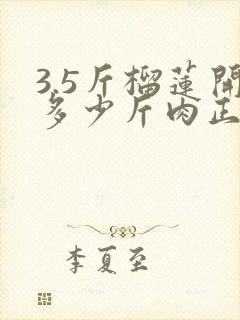 3.5斤榴莲開
多少斤肉正
李夏至